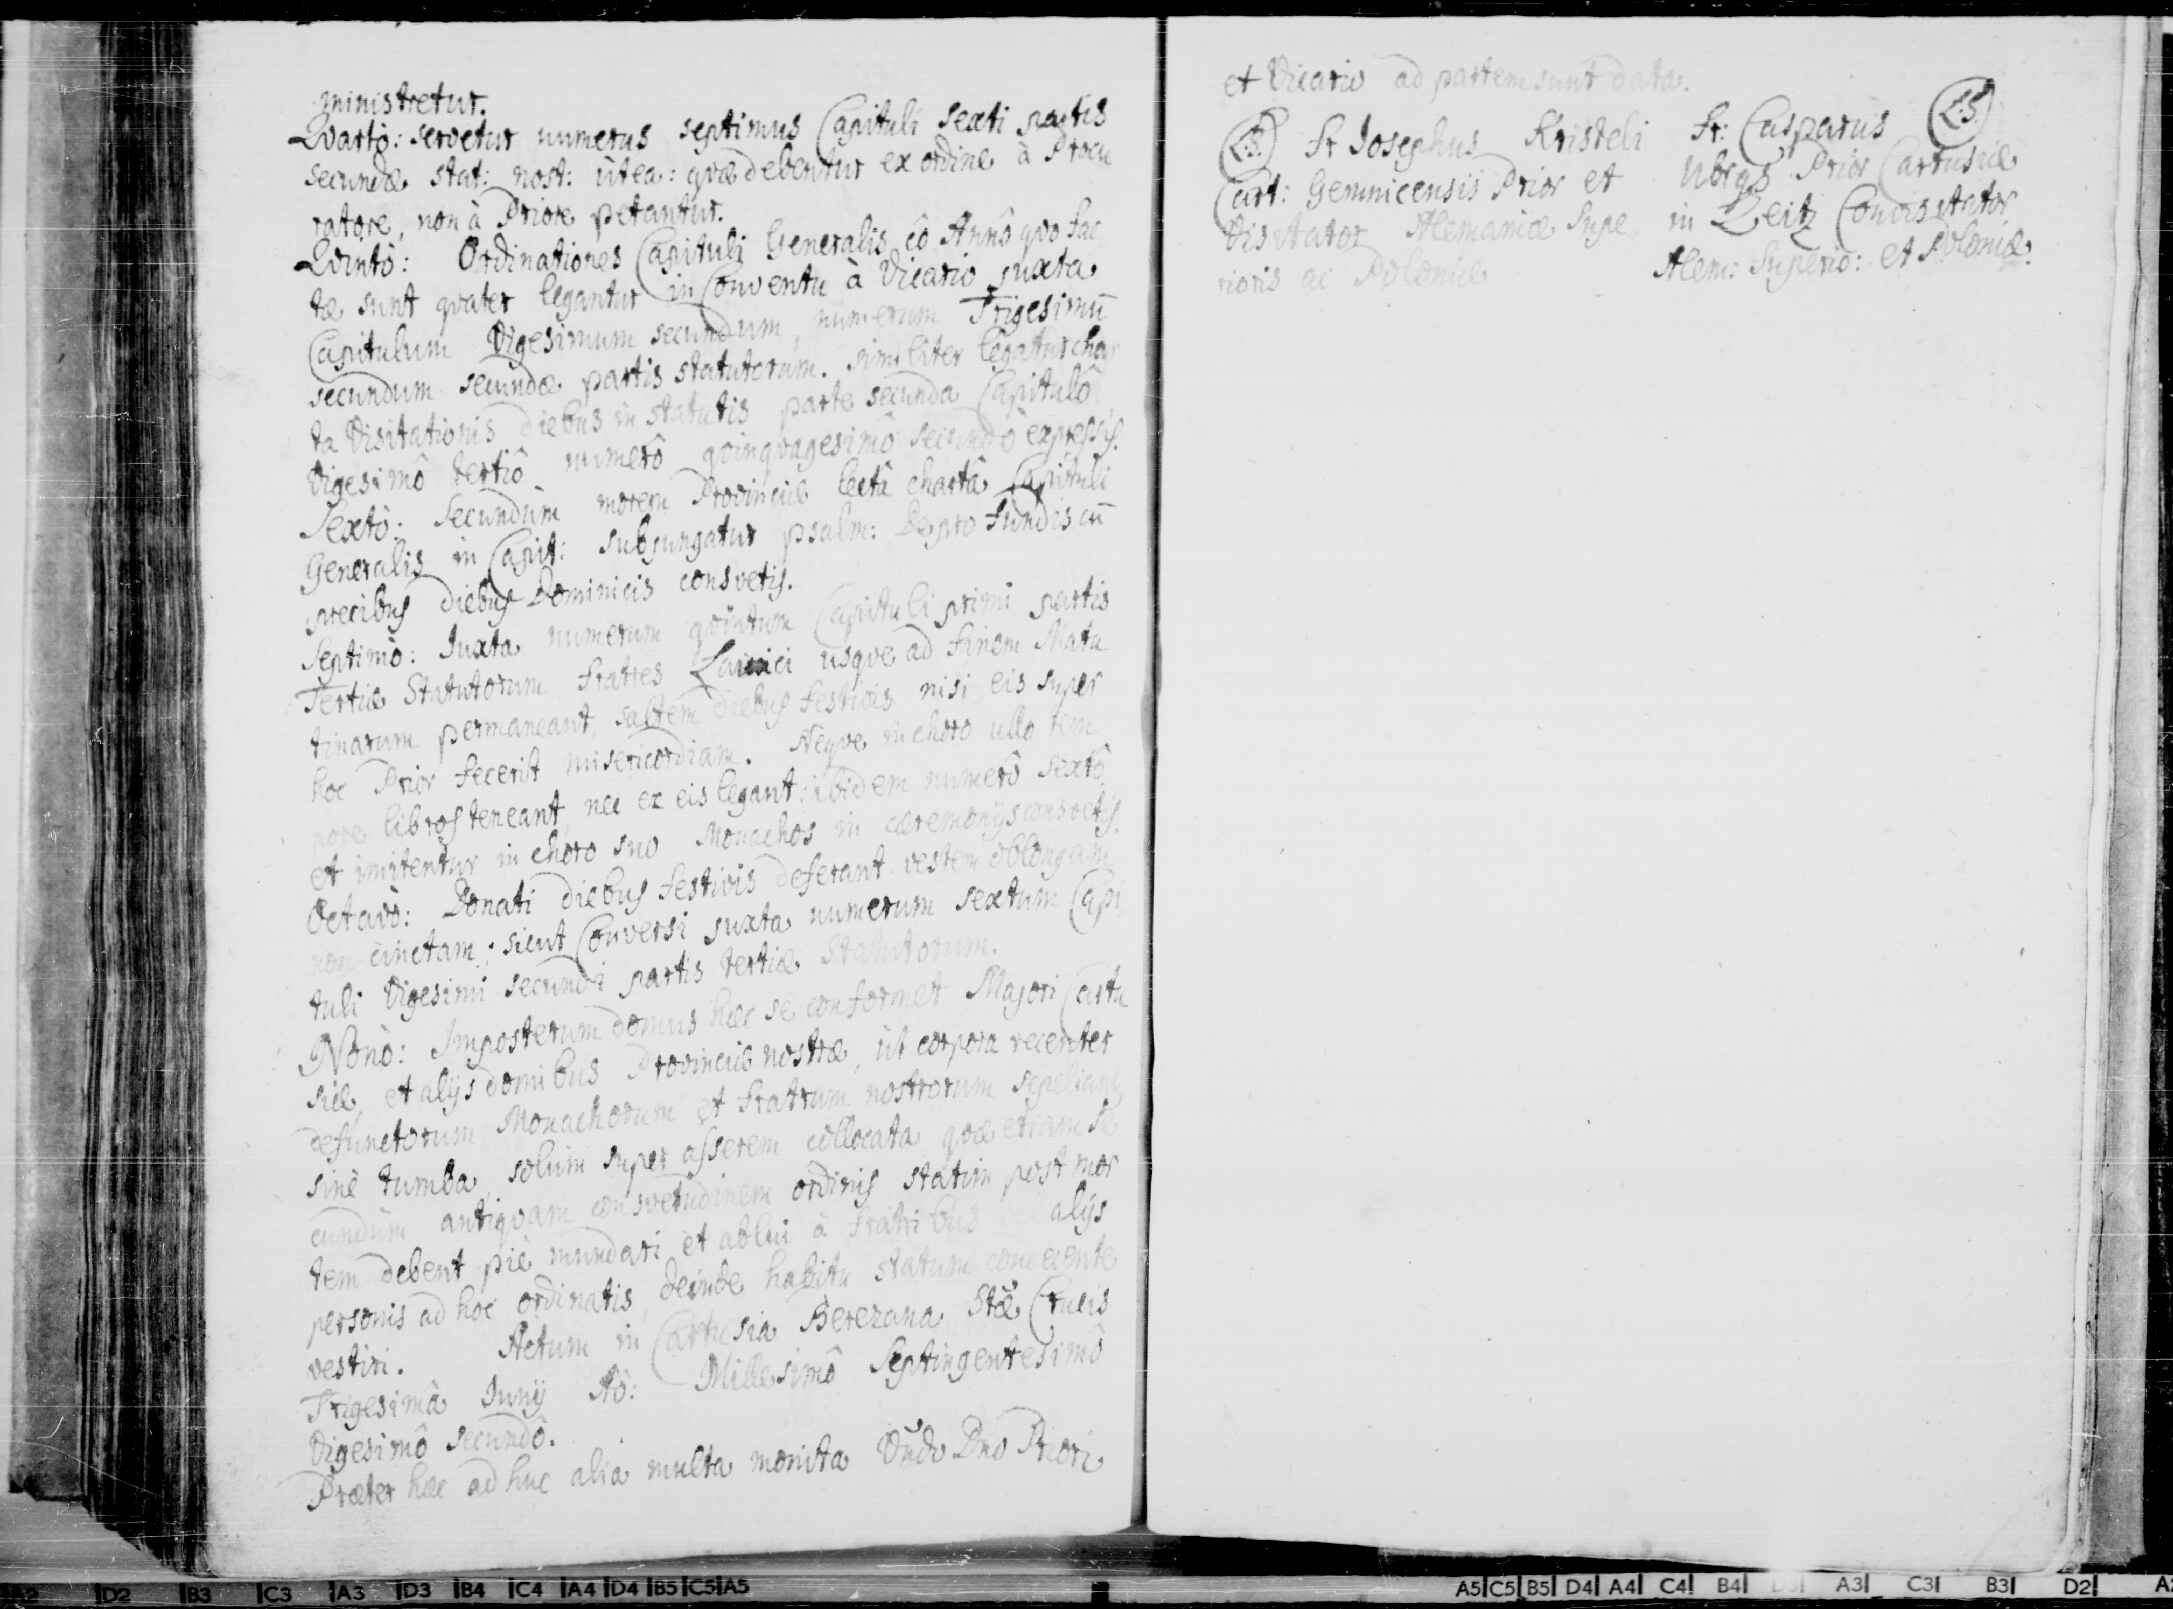 ministretur.
Qvartò: servetur numerus septimus Capituli sexti partis
secundæ stat: nost: ùtea: qvæ debentur ex ordine à Procu
ratore, non à Priore petantur.
Qvintò: Ordinationes Capituli Generalis, eô Annô qvo fac
tæ sunt qvater legantur in Conventu à Vicario juxta
Capitulum Vigesimum secundum, numerum Trigesimū
secundum secundæ partis statutorum. similiter legatur char
ta Visitationis diebus in statutis parte secunda Capitulô
Vigesimô tertiô numerô qvinqvagesimô secundô expressis.
Sextò: secundùm morem Provinciæ lectâ chartâ Capituli
Generalis in Capit: subjungatur psalm: De profundis cū
precibus diebus Dominicis consvetis.
Septimò: Juxta numerum qvintum Capituli primi partis
Tertiæ Statutorum fratres Laici usqve ad finem Matu
tinarum permaneant, saltem diebus festivis nisi eis super
hoc Prior fecerit misericordiam. Neqve in choro ullo tem
pore libros teneant, nec ex eis legant: ibidem numerô sextô.
et imitentur in choro suo Monachos in cæremonijs consvetis.
Octavò: Donati diebus festivis deferant vestem oblongam
non cinctam; sicut Conversi juxta numerum sextum Capi
tuli Vigesimi secundi partis tertiæ Statutorum.
Nonò: Imposterum domus hæc se conformet Majori Cartu
siæ, et alijs domibus Provinciæ nostræ, ùt corpora recenter
defunctorum Monachorum et fratrum nostrorum sepeliant
sinè tumba, solùm super asserem collocata qvæ etiam se
cundùm antiqvam consvetudinem ordinis statim post mor
tem debent piè mundari et ablui à fratribus vel alijs
personis ad hoc ordinatis, deinde habitu statum concernente
vestiri. Actum in Cartusia Berezana Stæ Crucis
Trigesimâ Junij Aô: Millesimô Septingentesimô
Vigesimô secundô.
Præter hæc ad huc alia multa monita Vndo Dno Priori
et Vicario ad partem sunt data.
L.S. Fr Josephus Kristeli Fr: Casparus L.S.
Cart: Gemnicensis Prior et Prior Cartusiæ
Visitator Alemaniæ Supe in Leitz Convisitator
rioris ac Poloniæ Alem: Superio: et Poloniæ.
A2 D2 B3 C3 A3 D3 B4 C4 A4 D4 B5 C5 A5
A5 C5 B5 D4 A4 C4 B4 D3 A3 C3 B3 D2